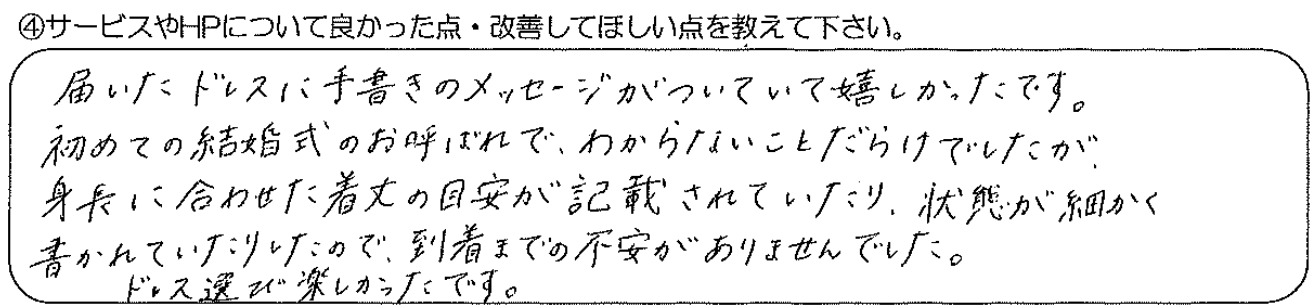 ④サービスやHPについて良かった点・改善してほしい点を教えて下さい。
届いたドレスに手書きのメッセージがついていて嬉しかったです。
初めての結婚式のお呼ばれで、わからないことだらけでしたが、
身長に合わせた着丈の目安が記載されていたり、状態が細かく
書かれていたりしたので、到着までの不安がありませんでした。
ドレス選び楽しかったです。